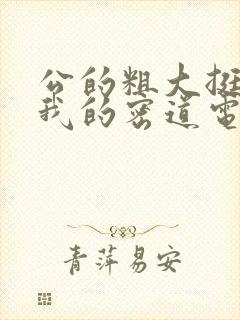 公的粗大挺
我的密道电
青萍易安